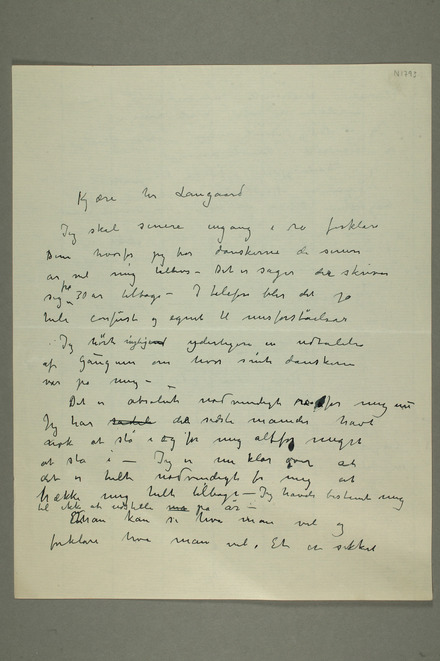 N1393
Kjære hr Langaard
Jeg skal senere engang i ro forklare
Dem hvorfor jeg har danskerne de senere
år mig tilbage – Det er sager der skriver
sig på 30 år tilbage – I telefon blir det jo
helt confust og egnet til misforståelser
Jeg hørte yderligere en udtalelse
af Gauguin om hvor sinte danskerne
var på mig –
Det er absolut nødvendigt for mig nu
Jeg har de sidste måneder havt
nok at stå i og for mig altfor meget
at stå i – Jeg er nu klar over at
det er helt nødvendigt for mig at
trække mig helt tilbage – Jeg havde bestemt mig
til ikke at udstille på år –
Man kan si hva man vil og
forklare hva man vil. Et er sikkert